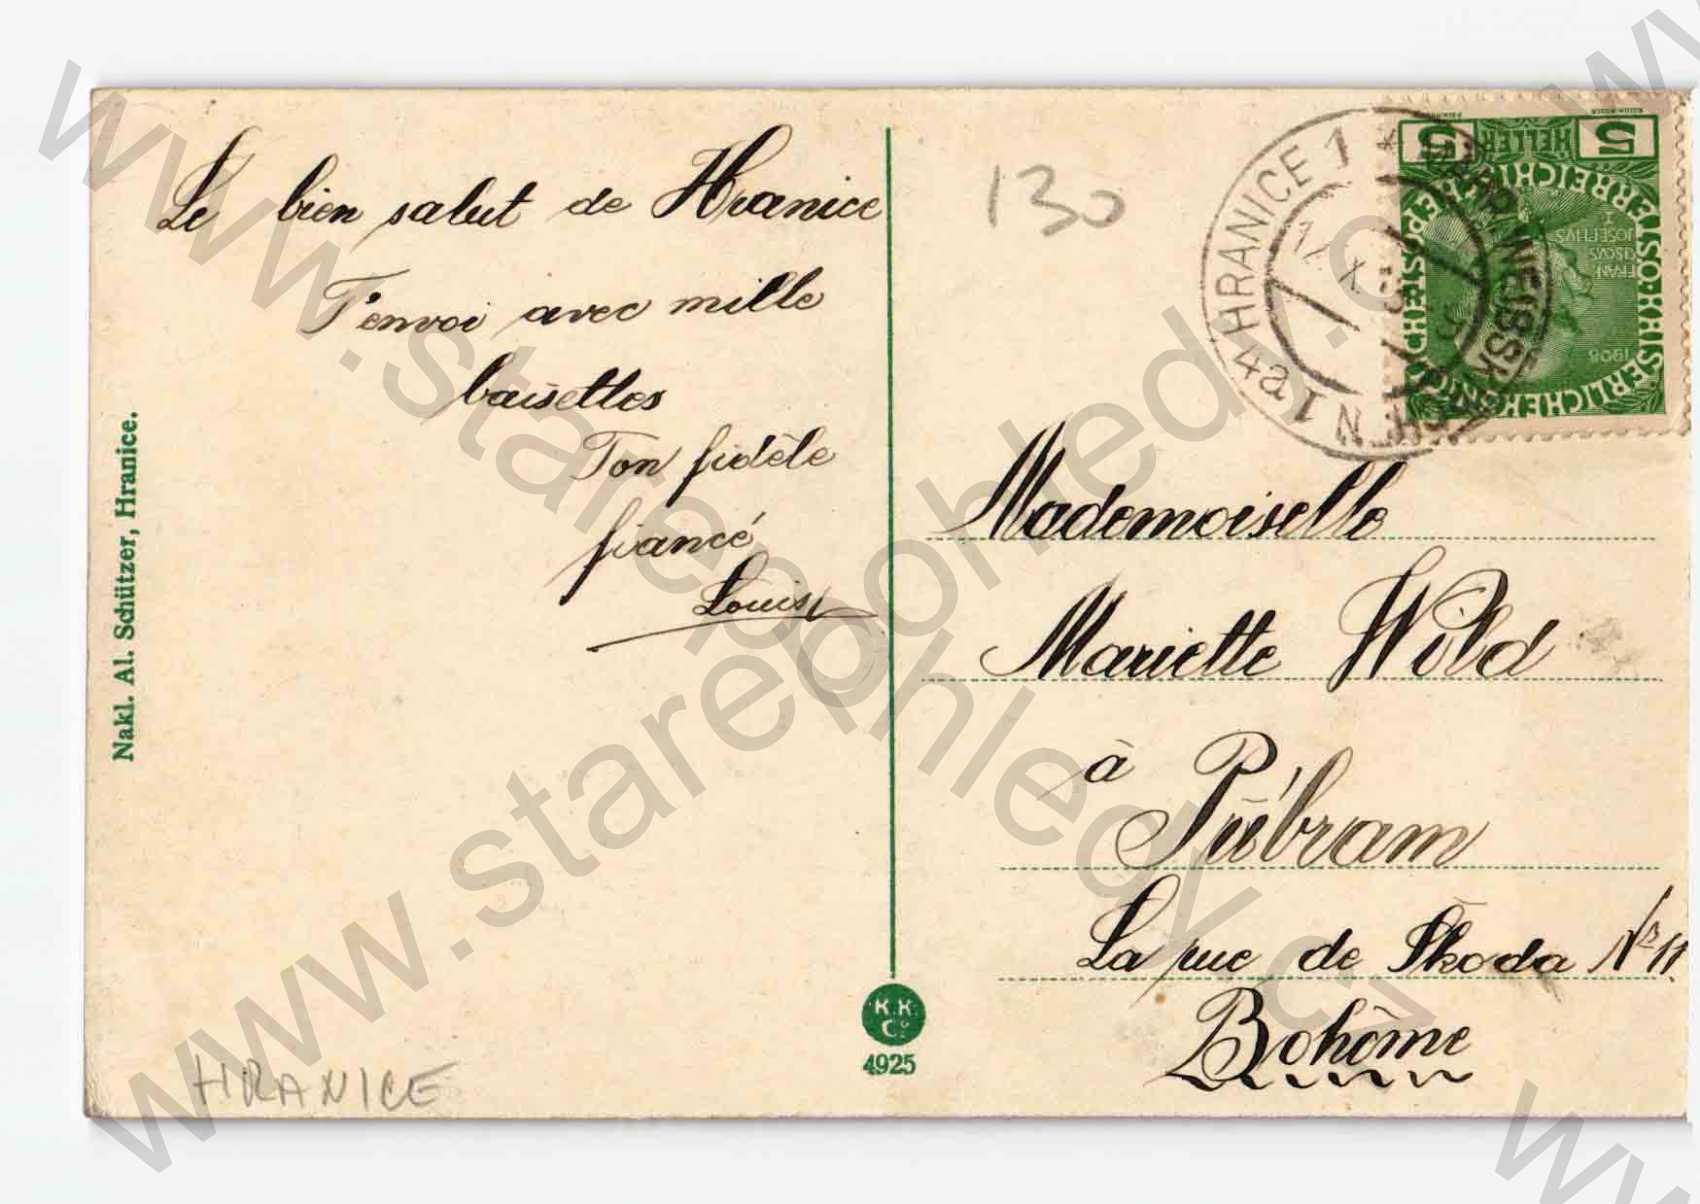 Le bien salut de Hranice
T'envoi avec mille
baisettes
Ton fidèle
fiancé
Louis
Nakl. Al. Schützer, Hranice.
HRANICE
K.K.
Co.
4925
130
HRANICE 1 * MÄHR. WEISSKIRCHEN 1 * 4a
5 HELLER 5
KAISERLICHE KÖNIGLICHE ÖSTERREICHISCHE POST
FRAN
CISCVS
JOSEPHVS
I
1908
Mademoiselle
Mariette Wild
à
Příbram
La rue de Škoda No 11
Bohême
www.starepohledy.cz
www.starepohledy.cz